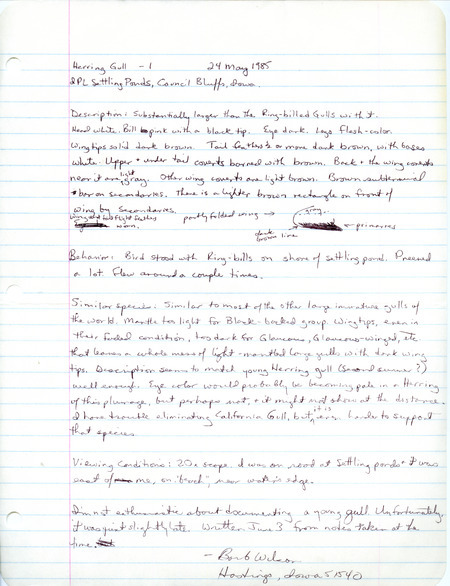 Herring Gull - 1 24 May 1985
IPL Settling Ponds, Council Bluffs, Iowa.
Description: Substantially larger than the Ring-billed Gulls with it.
Head white. Bill pink with a black tip. Eye dark. Legs flesh-color.
Wingtips solid dark brown. Tail feathers more dark brown, with bases
white. Upper + under tail coverts barred with brown. Back + the wing coverts
near it are light gray. Other wing coverts are light brown. Brown subterminal
bar on secondaries. There is a lighter brown rectangle on front of
wing by secondaries.
flight feathers worn.
partly folded wing → gray
dark brown line
primaries
Behavior: Bird stood with Ring-bills on shore of settling pond. Preened
a lot. Flew around a couple times.
Similar species: Similar to most of the other large immature gulls of
the world. Mantle too light for Black-backed group. Wingtips, even in
their faded condition, too dark for Glaucous, Glaucous-winged, etc
that leaves a whole mess of light-mantled large gulls with dark wing
tips. Description seems to match young Herring gull (second summer?)
well enough. Eye color would probably be becoming pale in a Herring
of this plumage, but perhaps not, + it might not show at the distance.
I have trouble eliminating California Gull, but it is harder to support
that species.
Viewing Conditions: 20x scope. I was on road at settling ponds + it was
east of me, on "beach", near water's edge.
I'm not enthusiastic about documenting a young gull. Unfortunately,
it was just slightly late. Written June 3 from notes taken at the
time.
- Barb Wilson
Hastings, Iowa 51540